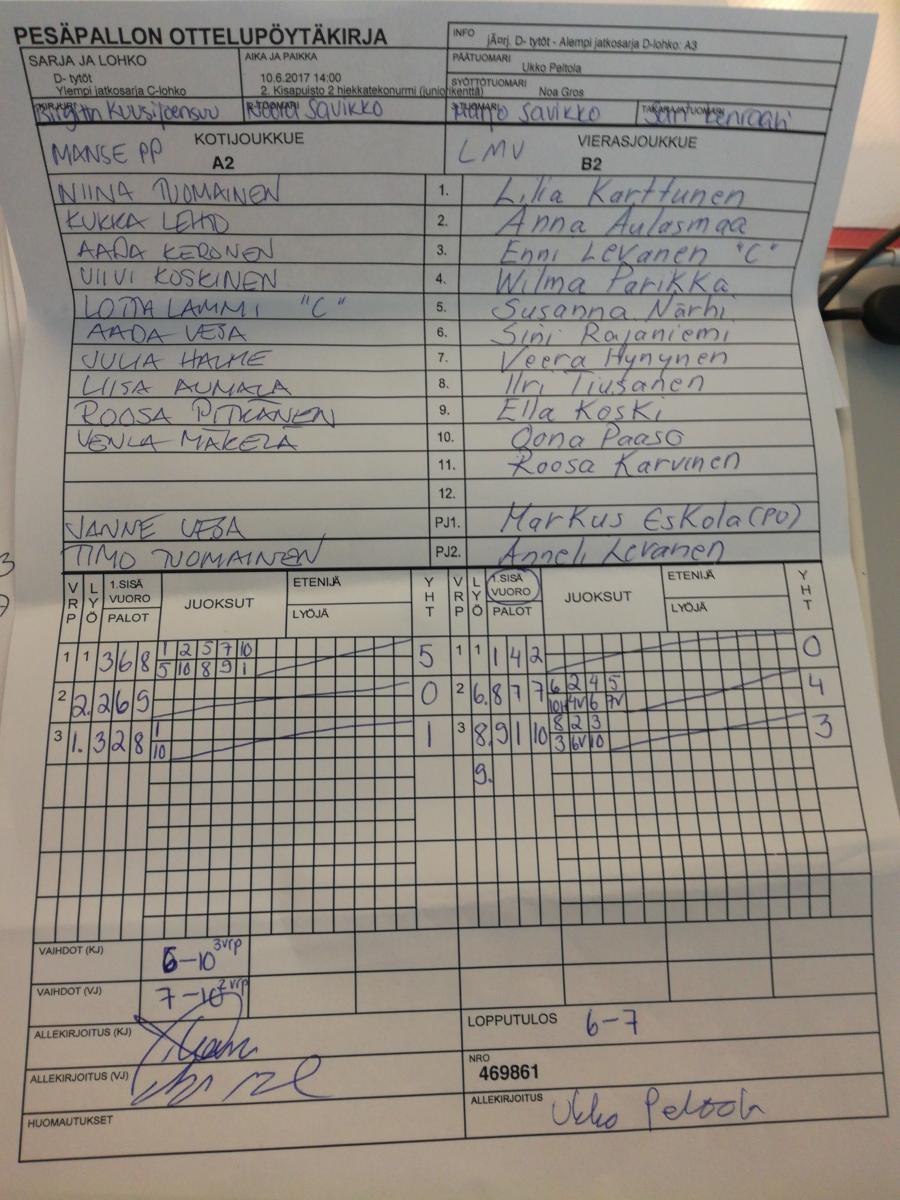 PESÄPALLON OTTELUPÖYTÄKIRJA
INFO jÃ¤rj. D- tytöt - Alempi jatkosarja D-lohko: A3
SARJA JA LOHKO
D- tytöt
Ylempi jatkosarja C-lohko
AIKA JA PAIKKA
10.6.2017 14:00
2. Kisapuisto 2 hiekkatekonurmi (juniorikenttä)
PÄÄTUOMARI
Ukko Peltola
SYÖTTÖTUOMARI
Noa Gros
KIRJURI Birgitta Kuusijoensuu
2-TUOMARI Noora Savikko
3-TUOMARI Marjo Savikko
TAKARAJATUOMARI Sari
MANSE PP KOTIJOUKKUE A2
LMV VIERASJOUKKUE B2
NIINA TUOMAINEN 1. Lilia Karttunen
KUKKA LEHTO 2. Anna Aulasmaa
AADA KERONEN 3. Enni Levanen "C"
VIIVI KOSKINEN 4. Wilma Parikka
LOTTA LAMMI "C" 5. Susanna Närhi
AADA VESA 6. Sini Rajaniemi
JULIA HALME 7. Veera Hynynen
LIISA AUMALA 8. Iiri Tiusanen
ROOSA PITKÄNEN 9. Ella Koski
VENLA MÄKELÄ 10. Oona Paaso
11. Roosa Karvinen
12.
JANNE VESA PJ1. Markus Eskola (PV)
TIMO TUOMAINEN PJ2. Anneli Levanen
VRP LYÖ 1.SISÄ VUORO PALOT JUOKSUT ETENIJÄ LYÖJÄ YHT VRP LYÖ 1.SISÄ VUORO PALOT JUOKSUT ETENIJÄ LYÖJÄ YHT
1 1 3 6 8 1 2 5 7 10 5 1 1 1 4 2 0
5 10 8 9 1
2 2. 2 6 9 0 2 6. 8 7 7 6 2 4 5 4
10H 4V 6 7V
3 1. 3 2 8 1 1 3 8. 9 1 10 8 2 3 3
10 3 6V 10
9.
VAIHDOT (KJ) 6-10 3vrp
VAIHDOT (VJ) 7-10 2vrp
ALLEKIRJOITUS (KJ)
LOPPUTULOS 6-7
ALLEKIRJOITUS (VJ)
NRO
469861
HUOMAUTUKSET
ALLEKIRJOITUS Ukko Peltola